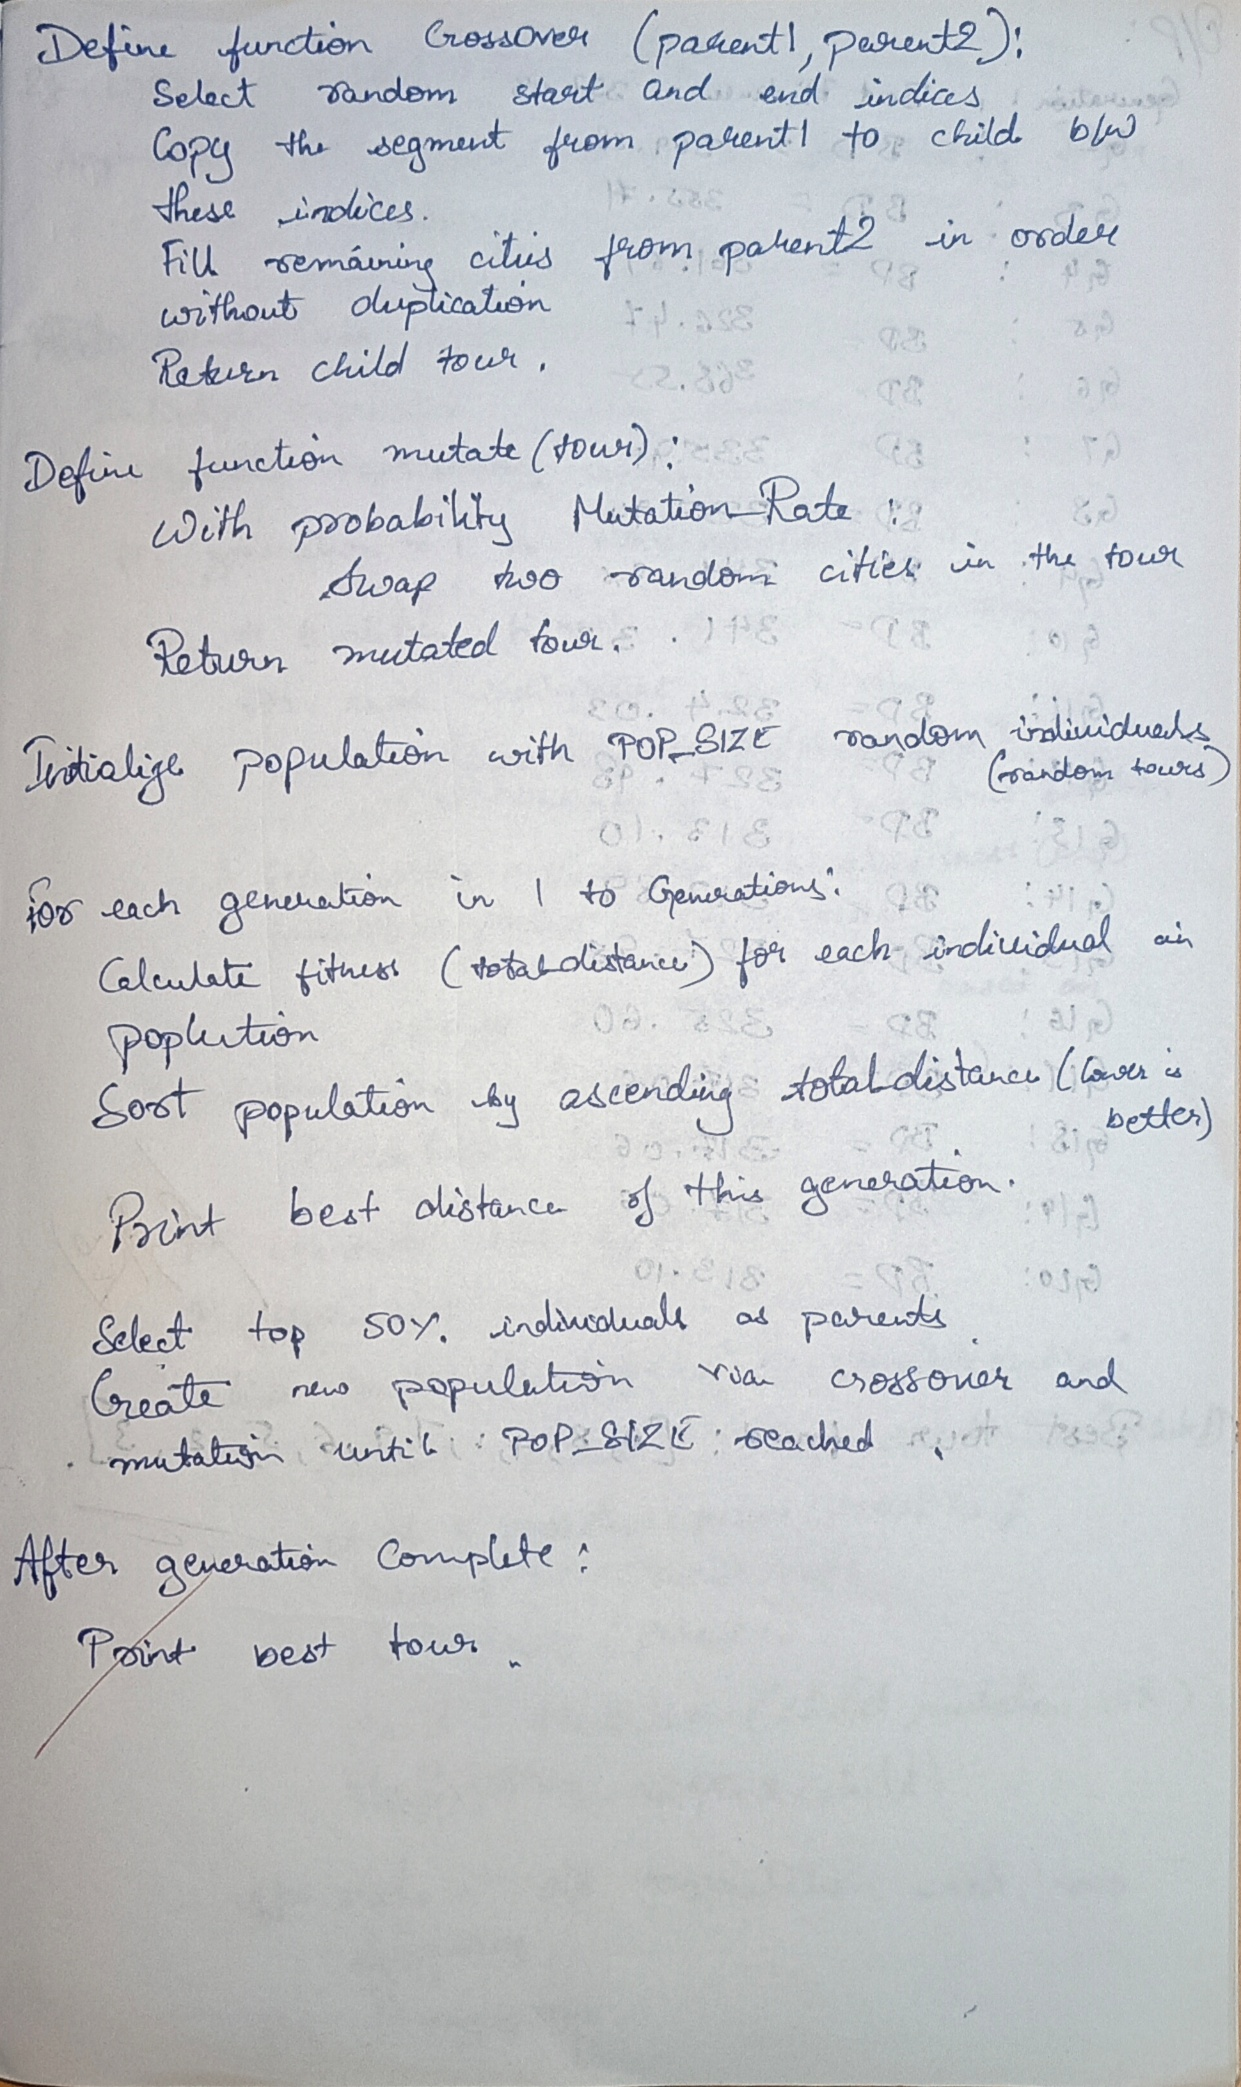 Define function Crossover (parent1, parent2):
Select random start and end indices
Copy the segment from parent1 to child b/w
these indices.
Fill remaining cities from parent2 in order
without duplication
Return child tour.
Define function mutate (tour):
With probability Mutation_Rate :
Swap two random cities in the tour
Return mutated tour.
Initialize population with POP_SIZE random individuals
(random tours)
For each generation in 1 to Generations:
Calculate fitness (total_distance) for each individual in
poplution
Sort population by ascending total_distance (lower is
better)
Print best distance of this generation.
Select top 50% individuals as parents.
Create new population via crossover and
mutation until POP_SIZE reached.
After generation Complete :
Print best tour.